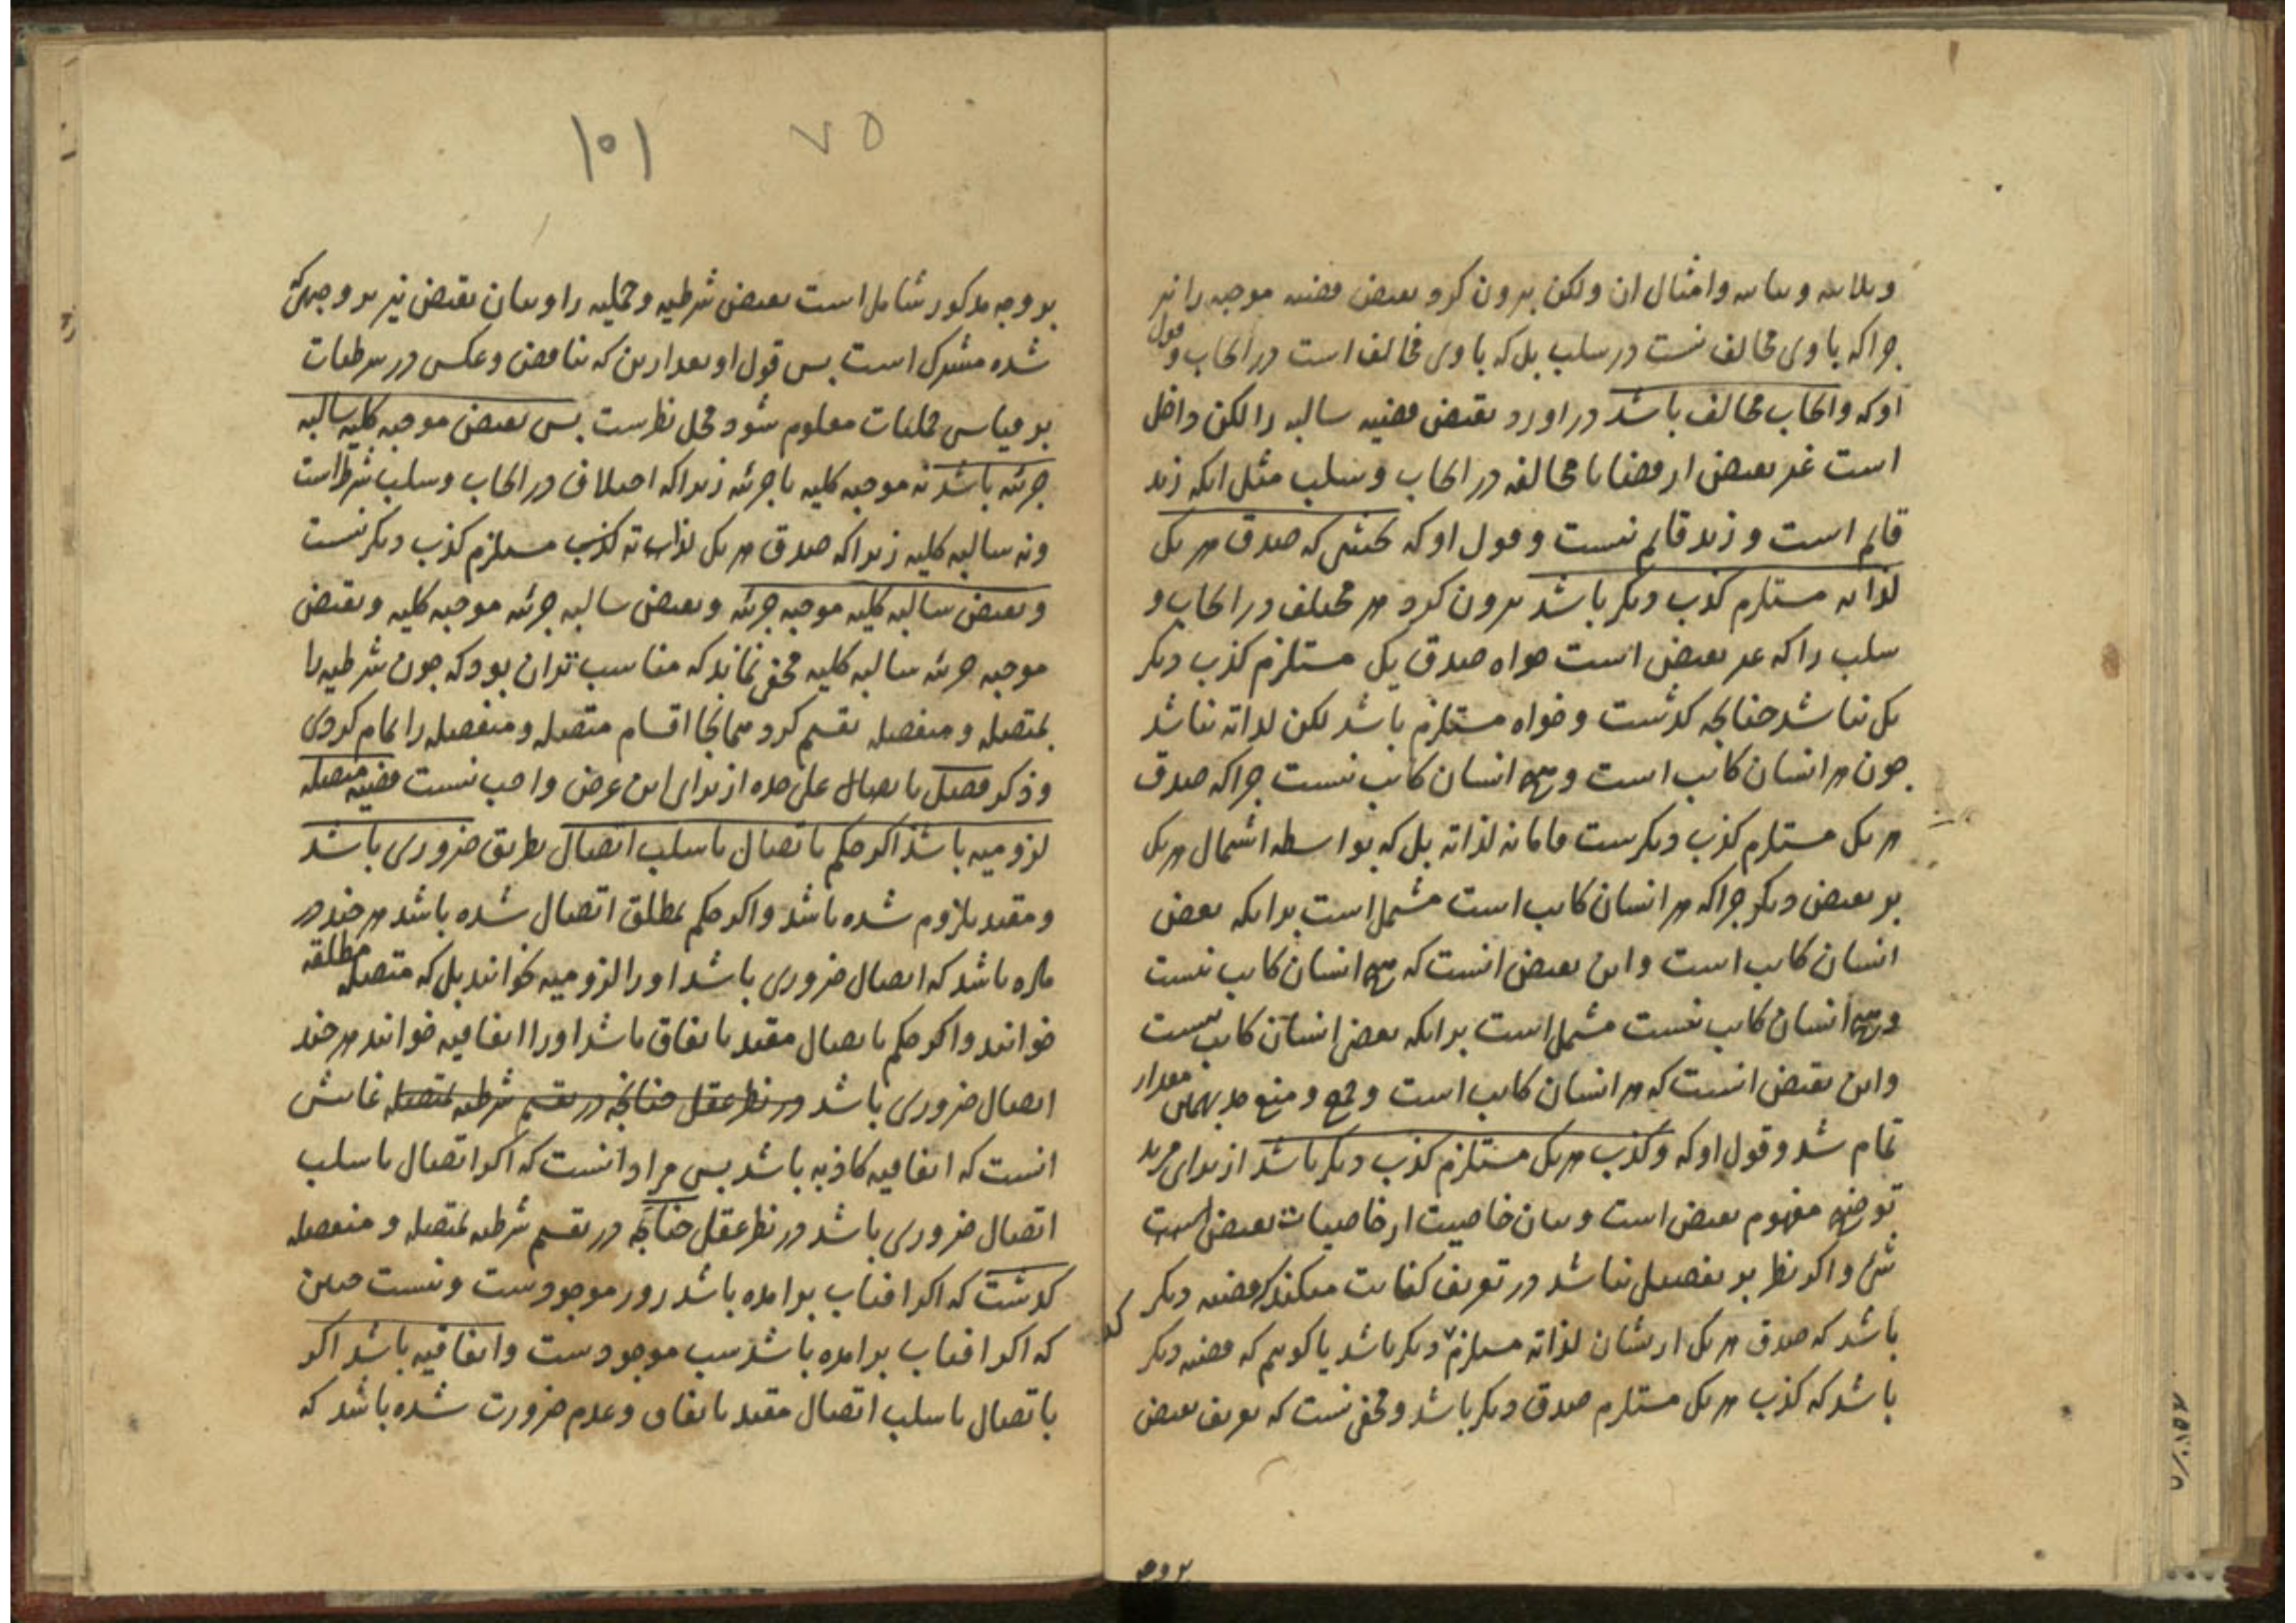 و امثال ان ولکن برون کرد نقیض قضیه موجبه را نیز
چرا که با وی مخالف نیست در سلب بل که با وی مخالف است در ایجاب و قول
او که و ایجاب مخالف باشد در اورد نقیض قضیه سالبه را لکن داخل
است غیر نقیض از قضایا مخالفه در ایجاب و سلب مثل انکه زید
قایم است و زید قایم نیست و قول او که بحیثی که صدق هر یک
لذاته مستلزم کذب دیگر باشد برون کرد هر مختلف در ایجاب و
سلب را که غیر نقیض است خواه صدق یک مستلزم کذب دیگر
یک نباشد چنانچه کذشت و خواه مستلزم باشد لکن لذاته نباشد
چون هر انسان کاتب است و هیچ انسان کاتب نیست چرا که صدق
هر یک مستلزم کذب دیگرست اما نه لذاته بل که بواسطه اشتمال هر یک
بر نقیض دیگر چرا که هر انسان کاتب است مشتمل است برانکه بعض
انسان کاتب است و این نقیض انست که هیچ انسان کاتب نیست
و هیچ انسان کاتب نیست مشتمل است برانکه بعض انسان کاتب نیست
و این نقیض انست که هر انسان کاتب است و جمع و منع مقدار
تمام شد و قول او که و کذب هر یک مستلزم کذب دیگر باشد از برای مزید
توضیح مفهوم نقیض است و بیان خاصیت از خاصیات نقیض است
شی و اکر نظر بر تفصیل نباشد در تعریف کفایت میکند که قضیه دیگر
باشد که صدق هر یک ازیشان لذاته مستلزم دیگر باشد یا کوییم که قضیه دیگر
باشد که کذب هر یک مستلزم صدق دیگر باشد و مخفی نیست که تعریف نقیض
بر وجه
۱۰۱ ۷۵
بر وجه مذکور شامل است نقیض شرطیه و حملیه را و بیان نقیض نیز بر وجهی که
شده مشترک است پس قول او بعد ازین که تناقض و عکس در شرطیات
بر قیاس حملیات معلوم شود محل نظرست پس نقیض موجبه کلیه سالبه
جزئیه باشد نه موجبه کلیه یا جزئیه زیرا که اختلاف در ایجاب و سلب شرط است
و نه سالبه کلیه زیرا که صدق هر یک لذاته کذب مستلزم کذب دیگر نیست
و نقیض سالبه کلیه موجبه جزئیه و نقیض سالبه جزئیه موجبه کلیه و نقیض
موجبه جزئیه سالبه کلیه مخفی نماند که مناسب تر ان بود که چون شرطیه را
بمتصله و منفصله تقسیم کرد همانجا اقسام متصله و منفصله را تمام کردی
و ذکر فصل باتصال علی حده از برای این غرض واجب نیست قضیه متصله
لزومیه باشد اکر حکم باتصال یا سلب اتصال بطریق ضروری باشد
و مقید بلزوم شده باشد و اکر حکم بمطلق اتصال شده باشد هر چند در
ماده باشد که اتصال ضروری باشد او را لزومیه نخوانند بل که متصله مطلقه
خوانند و اکر حکم باتصال مقید باتفاق باشد او را اتفاقیه خوانند هر چند
اتصال ضروری باشد در نظر عقل چنانچه در تقسیم شرطیه بمتصله غایتش
انست که اتفاقیه کاذبه باشد پس مراد انست که اکر اتصال یا سلب
اتصال ضروری باشد در نظر عقل چنانچه در تقسیم شرطیه بمتصله و منفصله
کذشت که اکر افتاب برامده باشد روز موجودست و نیست چنین
که اکر افتاب برامده باشد شب موجودست و اتفاقیه باشد اکر
باتصال یا سلب اتصال مقید باتفاق و عدم ضرورت شده باشد که